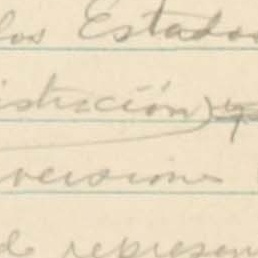 los Estados
istración) y
versiones
de represen